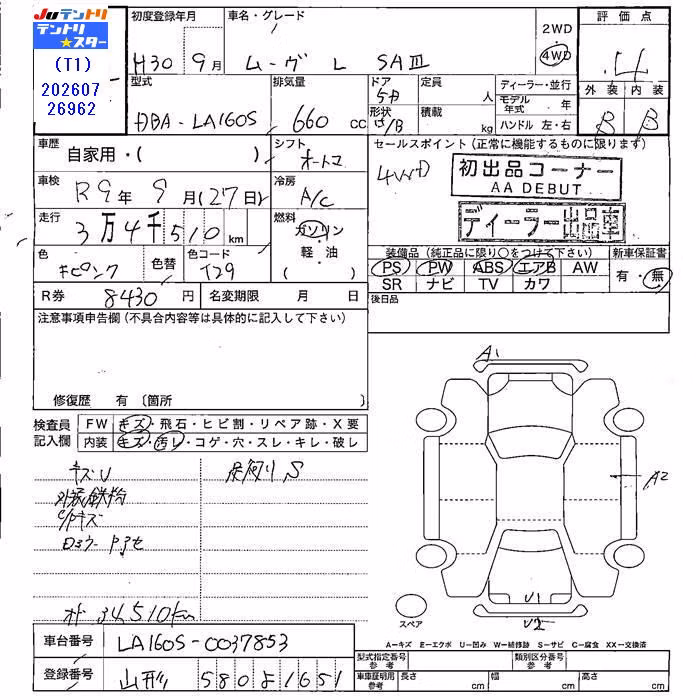 Juテントリ
テントリ
★スター
(T1)
202607
26962
初度登録年月 車名・グレード
H30 9月 ムーヴ L SAⅢ
2WD
4WD
評価点
4
外装 内装
B B
型式 排気量 ドア 定員 ディーラー・並行
DBA-LA160S 660 cc 5D 人 モデル年式 年
形状 積載 kg ハンドル 左・右
車歴 自家用・( ) シフト オートマ
セールスポイント(正常に機能するものに限ります)
4WD
初出品コーナー
AA DEBUT
ディーラー出品車
車検 R9年 9月(27日) 冷房 A/C
走行 3万4千510km 燃料 ガソリン
軽・油
( )
色 色替 色コード T29
装備品(純正品に限り○をつけて下さい) 新車保証書
PS PW ABS エアB AW 有・無
SR ナビ TV カワ
R券 8430円 名変期限 月 日
後日品
注意事項申告欄(不具合内容等は具体的に記入して下さい)
修復歴 有〔箇所 〕
検査員
記入欄
FW キズ・飛石・ヒビ割・リペア跡・X要
内装 キズ・汚レ・コゲ・穴・スレ・キレ・破レ
キズU
外装鉄粉
34,510km
A1
A2
U1
U2
スペア
A-キズ E-エクボ U-凹み W-補修跡 S-サビ C-腐食 XX-交換済
車台番号 LA160S-0037853
型式指定番号 参考 類別区分番号 参考
登録番号 山形 580よ1651
車庫証明用 参考 長さ cm 幅 cm 高さ cm